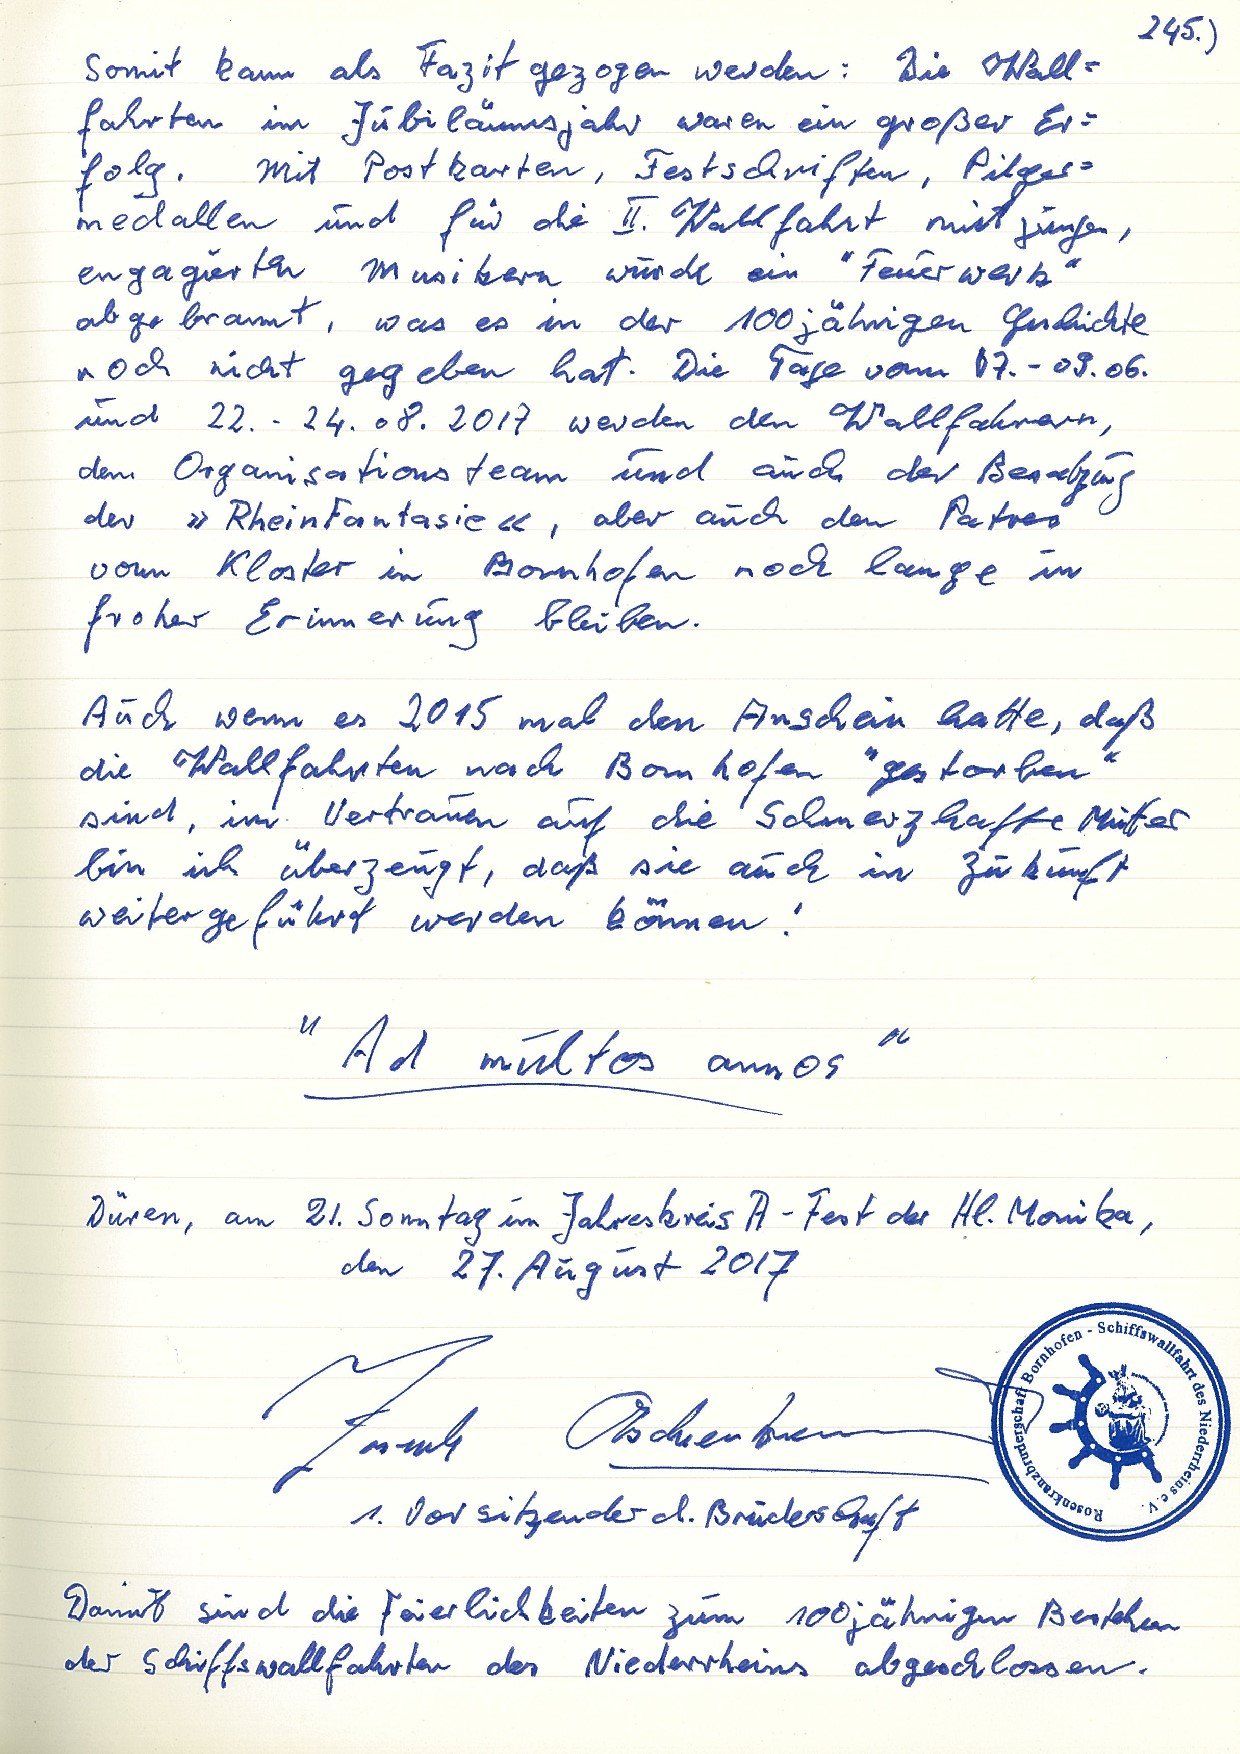 245.)
Somit kann als Fazit gezogen werden: Die Wall=
fahrten im Jubiläumsjahr waren ein großer Er=
folg. Mit Postkarten, Festschriften, Pilger=
medallen und für die II. Wallfahrt mit jungen,
engagierten Musikern wurde ein "Feuerwerk"
abgebrannt, was es in der 100jährigen Geschichte
noch nicht gegeben hat. Die Tage vom 07.-09.06.
und 22.-24.08.2017 werden den Wallfahrern,
dem Organisationsteam und auch der Besatzung
der »RheinFantasie«, aber auch den Patres
vom Kloster in Bornhofen noch lange in
froher Erinnerung bleiben.
Auch wenn es 2015 mal den Anschein hatte, daß
die Wallfahrten nach Bornhofen "gestorben"
sind, im Vertrauen auf die Schmerzhafte Mutter
bin ich überzeugt, daß sie auch in Zukunft
weitergeführt werden können!
"Ad multos annos"
Düren, am 21. Sonntag im Jahreskreis A - Fest der Hl. Monika,
den 27. August 2017
Rosenkranzbruderschaft Bornhofen - Schiffswallfahrt des Niederrheins e.V.
1. Vorsitzender d. Bruderschaft
Damit sind die Feierlichkeiten zum 100jährigen Bestehen
der Schiffswallfahrten des Niederrheins abgeschlossen.